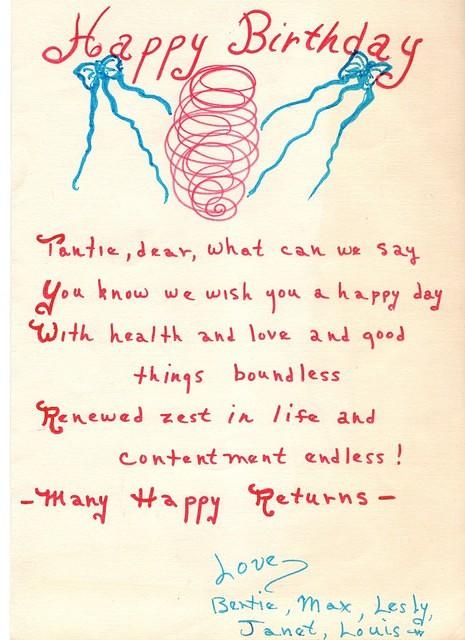 Happy Birthday
Tantie, dear, what can we say
You know we wish you a happy day
With health and love and good
things boundless
Renewed zest in life and
contentment endless!
-Many Happy Returns-
Love
Bertie, Max, Lesly,
Janet, Louis